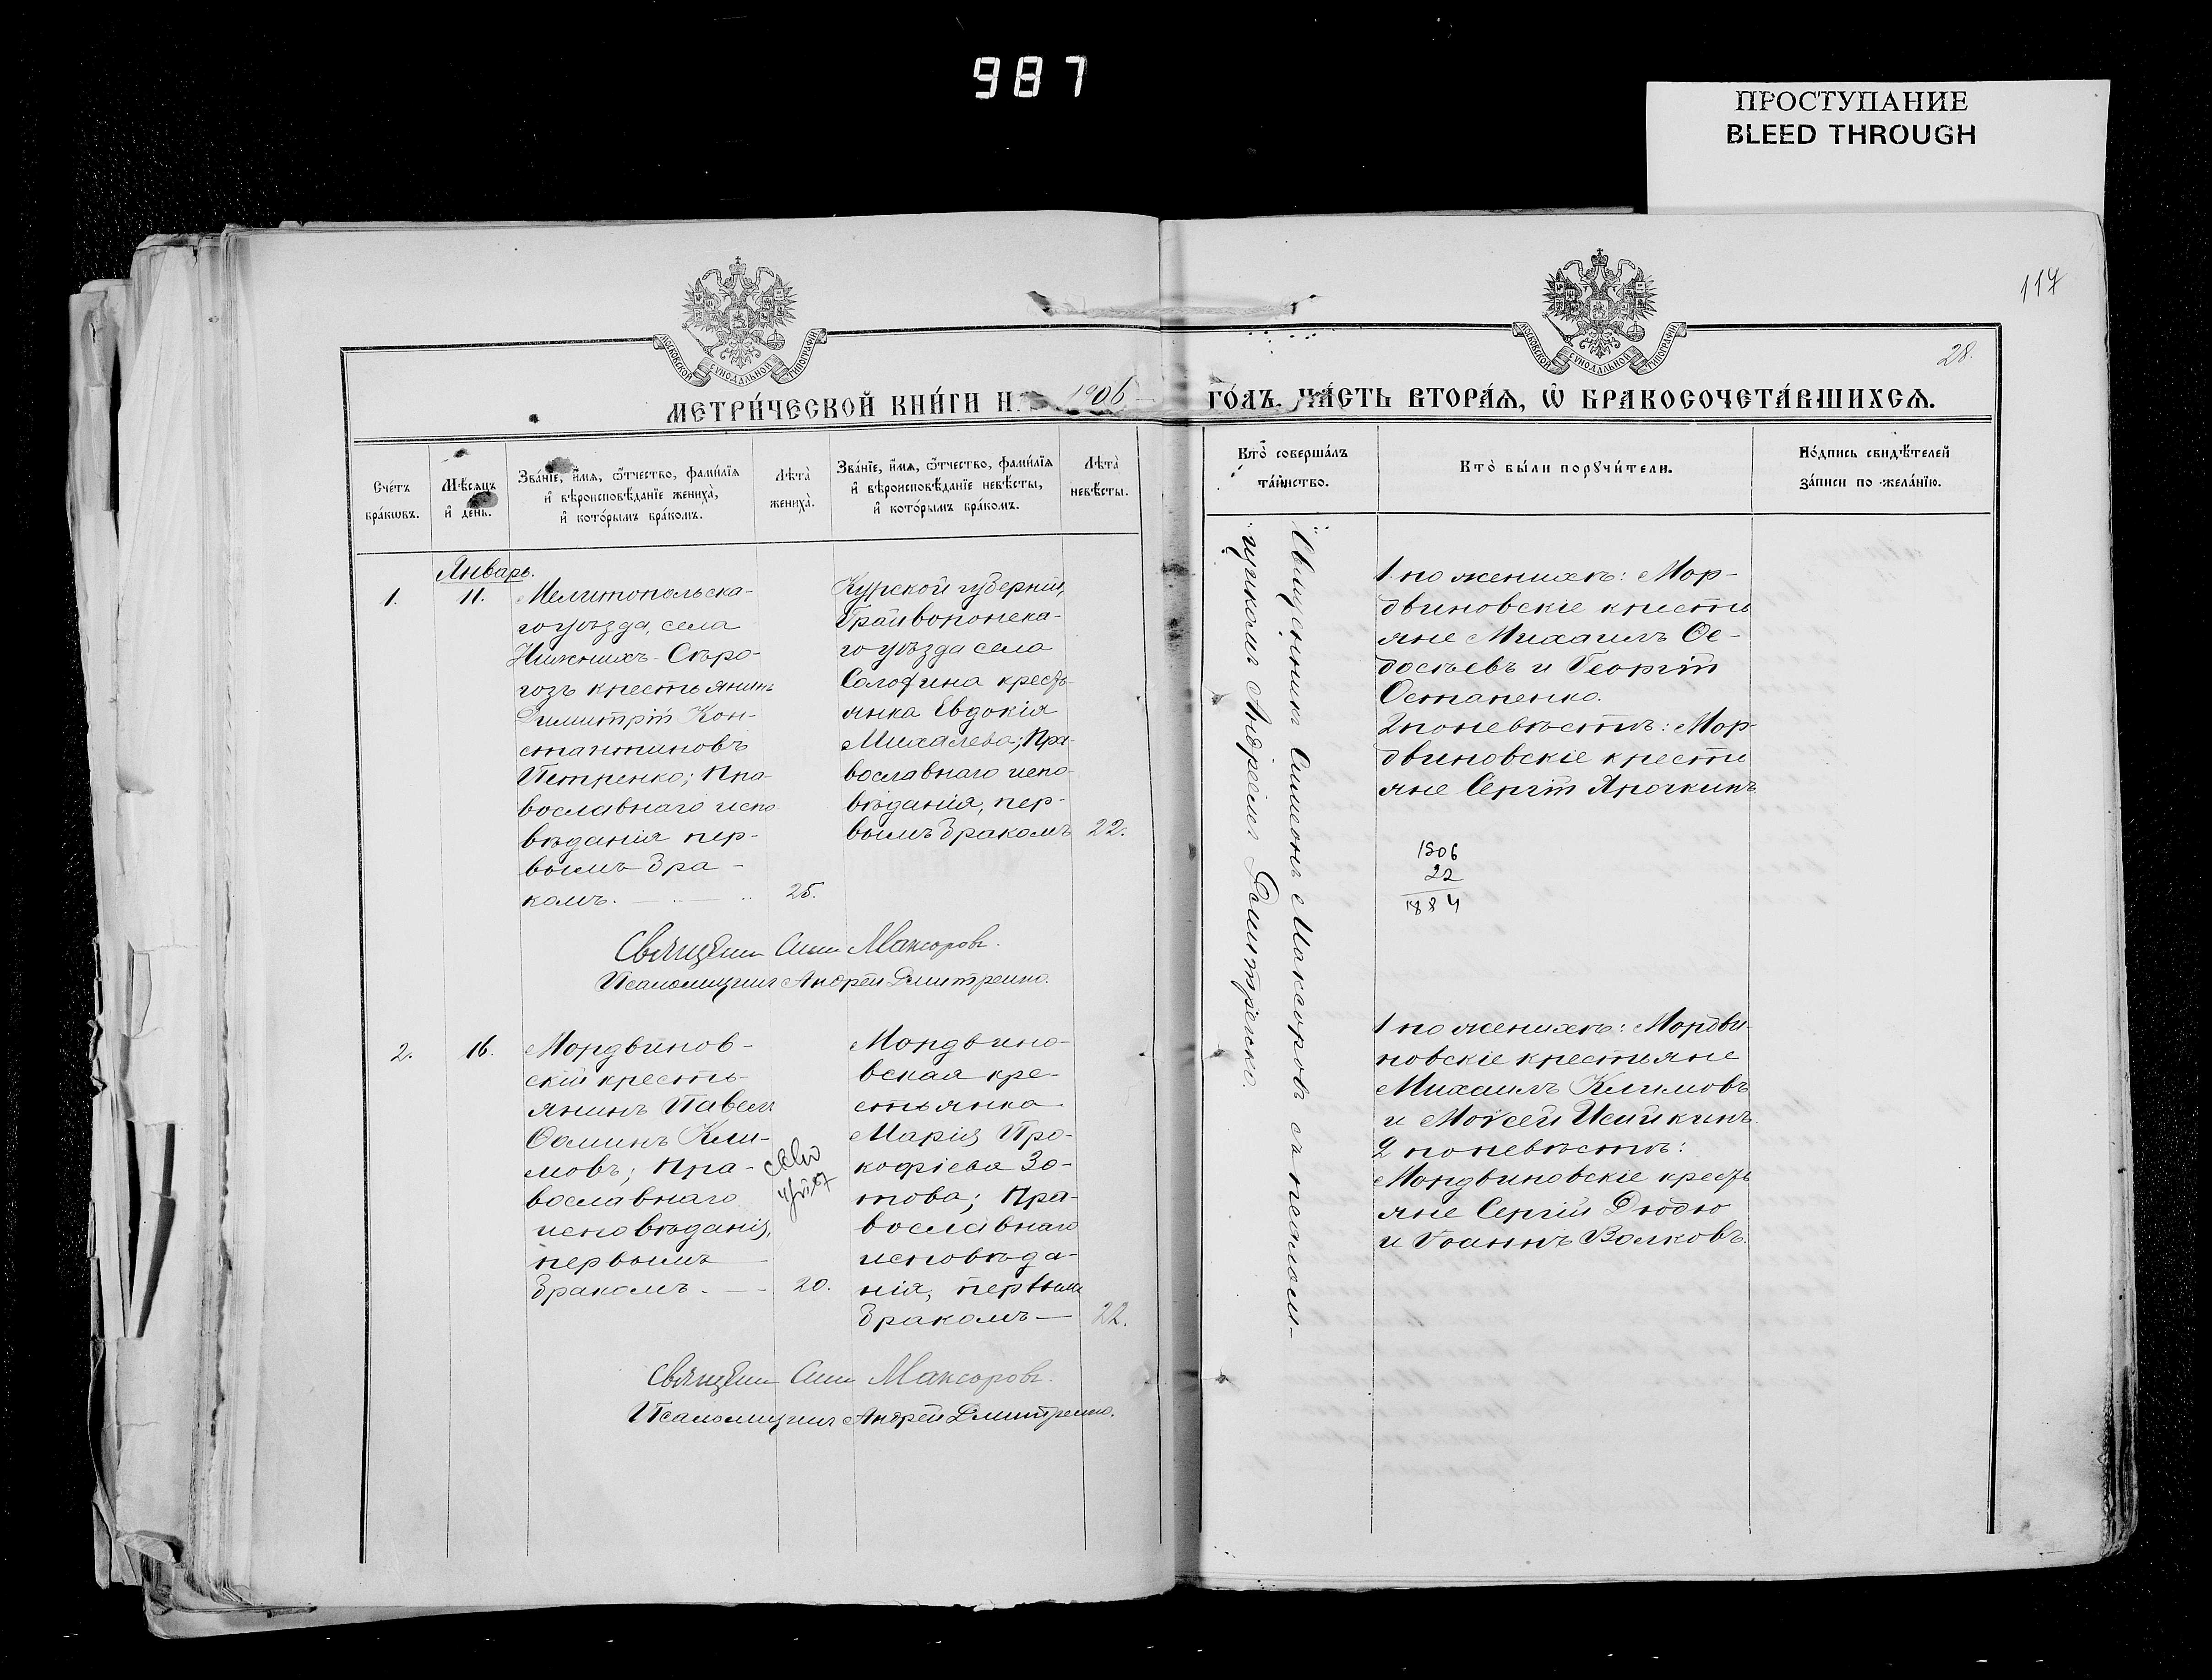 987
ПРОСТУПАНИЕ
BLEED THROUGH
117
28.
МОСКОВСКОЙ СУНОДАЛЬНОЙ ТИПОГРАФІИ
МОСКОВСКОЙ СУНОДАЛЬНОЙ ТИПОГРАФІИ
МЕТРИ́ЧЕСКОЙ КНИ́ГИ Н 1906 ГО́ДЪ. ЧА́СТЬ ВТОРА́Я, Ѡ БРАКОСОЧЕТА́ВШИХСЯ.
Сче́тъ
бра́кѡвъ.
Мѣ́сяцъ
и҆ де́нь.
Зва́нїе, и҆́мя, ѻ҆́тчество, фами́лїя
и҆ вѣроисповѣ́данїе жениха̀,
и҆ кото́рымъ бра́комъ.
Лѣта̀
жениха̀.
Зва́нїе, и҆́мя, ѻ҆́тчество, фами́лїя
и҆ вѣроисповѣ́данїе невѣ́сты,
и҆ кото́рымъ бра́комъ.
Лѣта̀
невѣ́сты.
Кто̀ соверша́лъ
та́инство.
Кто̀ бы́ли порꙋчи́тели.
По́дпись свидѣ́телей
за́писи по жела́нїю.
Январь.
1.
11.
Мелитопольска-
го уѣзда, села
Нижнихъ-Сѣро-
гозъ крестьянинъ
Димитрій Кон-
стантиновъ
Петренко; Пра-
вославнаго испо
вѣданія пер-
вымъ бра-
комъ.
25.
Курской губерніи,
Грайворонска-
го уѣзда села
Солохина кресть-
янка Евдокія
Михалева; Пра-
вославнаго испо-
вѣданія, пер-
вымъ бракомъ
22.
Священникъ Симеонъ Максоровъ съ псалом-
щикомъ Андреемъ Дмитренко.
1 по женихѣ: Мор-
двиновскіе кресть
яне Михаилъ Ѳе-
досѣевъ и Георгій
Остапенко.
2 по невѣстѣ: Мор-
двиновскіе кресть
яне Сергій Ярочкинъ
1906
22
1884
Священ Сим Максоровъ.
Псаломщикъ Андрей Дмитренко.
2.
16.
Мордвинов-
скій кресть-
янинъ Павелъ
Ѳоминъ Кли-
мовъ; Пра-
вославнаго
исповѣданія,
первымъ
бракомъ.
20.
Мордвино-
вская кре-
стьянка
Марія Про-
кофіева Зо-
това; Пра-
вославнаго
исповѣда-
нія, первымъ
бракомъ
22.
1 по женихѣ: Мордви-
новскіе крестьяне
Михаилъ Климовъ
и Моѵсей Исайкинъ.
2 по невѣстѣ:
Мордвиновскіе кресть
яне Сергій Дюдю
и Іоаннъ Волковъ.
Священ Сим Максоровъ.
Псаломщикъ Андрей Дмитренко.